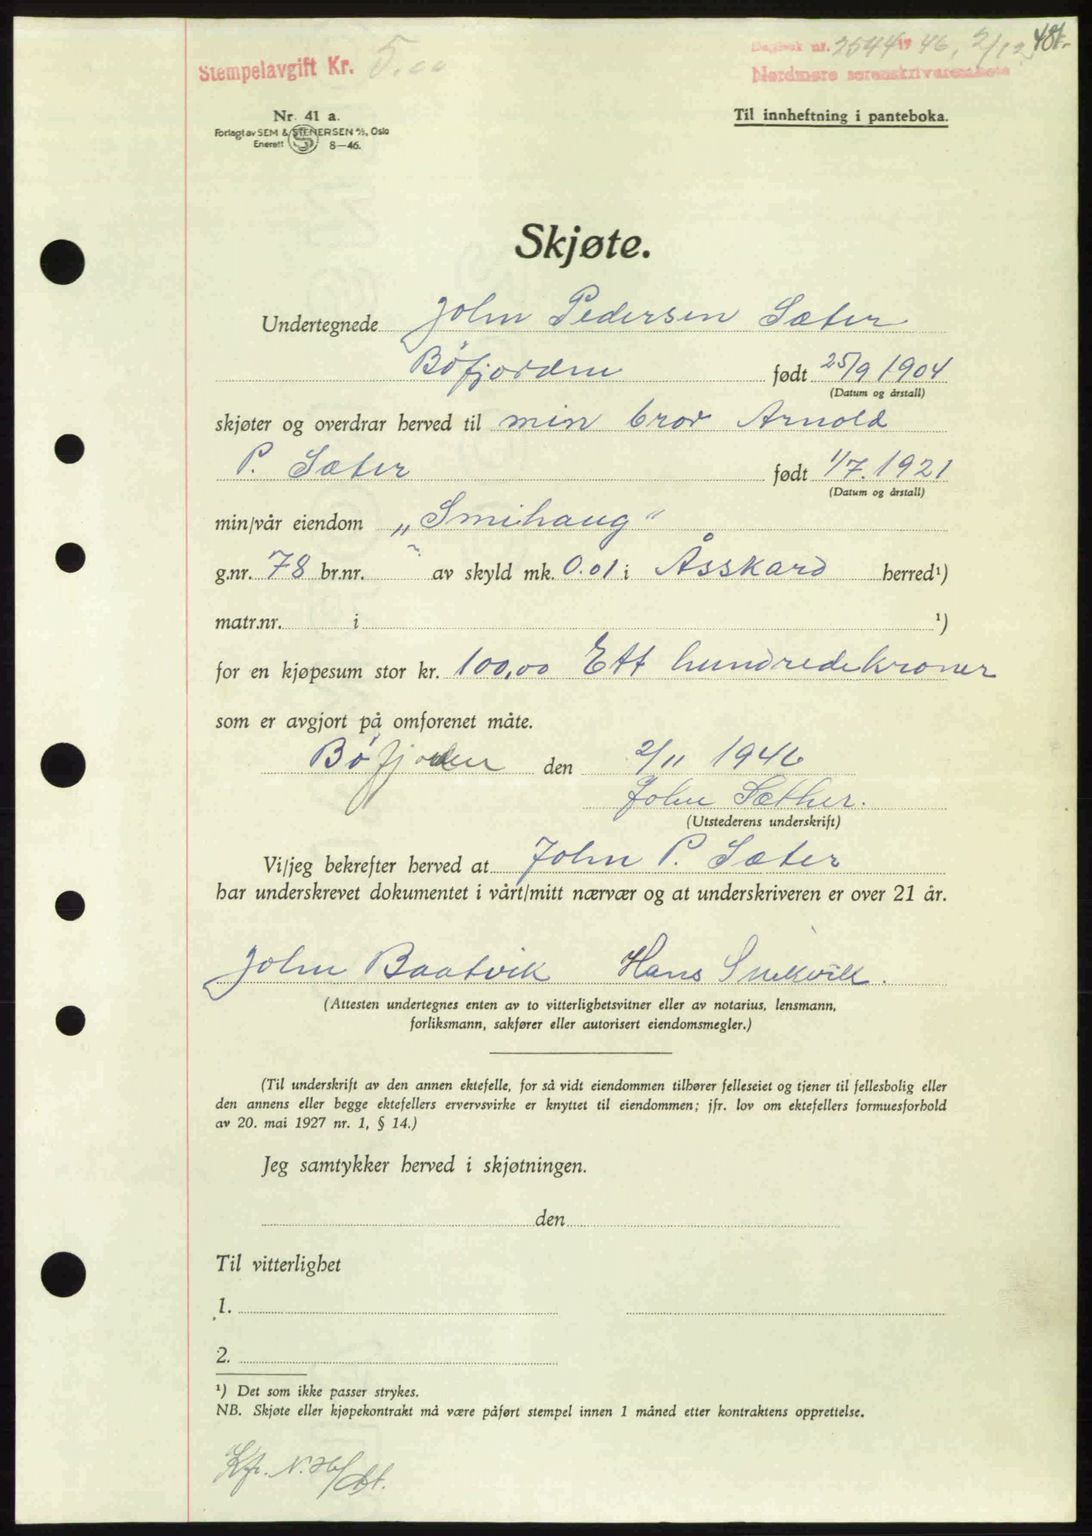 Stempelavgift Kr. 5.00
Dagbok nr. 2544 19 46, 2/12 481.
Nordmøre sorenskriverembete
Nr. 41 a.
Forlagt av SEM & STENERSEN A/S, Oslo
Enerett S 8—46.
Til innheftning i panteboka.
Skjøte.
Undertegnede John Pedersen Sæter
Bøfjorden født 25/9 1904
(Datum og årstall)
skjøter og overdrar herved til min bror Arnold
P. Sæter født 1/7. 1921
(Datum og årstall)
min/vår eiendom „Smihaug"
g.nr. 78 br.nr. av skyld mk. 0.01 i Åsskard herred¹)
matr.nr. i ¹)
for en kjøpesum stor kr. 100,00 Ett hundredekroner
som er avgjort på omforenet måte.
Bøfjorden den 2/11 1946
John Sæther.
(Utstederens underskrift)
Vi/jeg bekrefter herved at John P. Sæter
har underskrevet dokumentet i vårt/mitt nærvær og at underskriveren er over 21 år.
John Baatvik Hans Snekvik.
(Attesten undertegnes enten av to vitterlighetsvitner eller av notarius, lensmann,
forliksmann, sakfører eller autorisert eiendomsmegler.)
(Til underskrift av den annen ektefelle, for så vidt eiendommen tilhører felleseiet og tjener til fellesbolig eller
den annens eller begge ektefellers ervervsvirke er knyttet til eiendommen; jfr. lov om ektefellers formuesforhold
av 20. mai 1927 nr. 1, § 14.)
Jeg samtykker herved i skjøtningen.
den
Til vitterlighet
1.
2.
¹) Det som ikke passer strykes.
NB. Skjøte eller kjøpekontrakt må være påført stempel innen 1 måned etter kontraktens opprettelse.